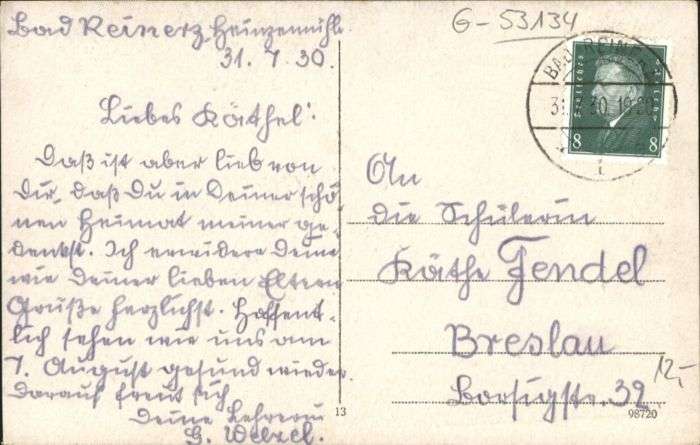 G-53134
Bad Reinerz, Heinzemühle
31.7.30.
Liebes Käthel!
Daß ist aber lieb von
Dir, daß Du in Deiner schö-
nen Heimat meiner ge-
denkst. Ich erwidere Deine
wie Deiner lieben Eltern
Grüße herzlichst. Hoffent-
lich sehen wir uns am
7. August gesund wieder.
Darauf freut sich
Deine Lehrerin
G. Welzel.
BAD REINERZ
31.7.30.19-20
Deutsches Reich
8 8
An
die Schülerin
Käthe Fendel
Breslau
Borsigstr. 32
12,-
13
98720